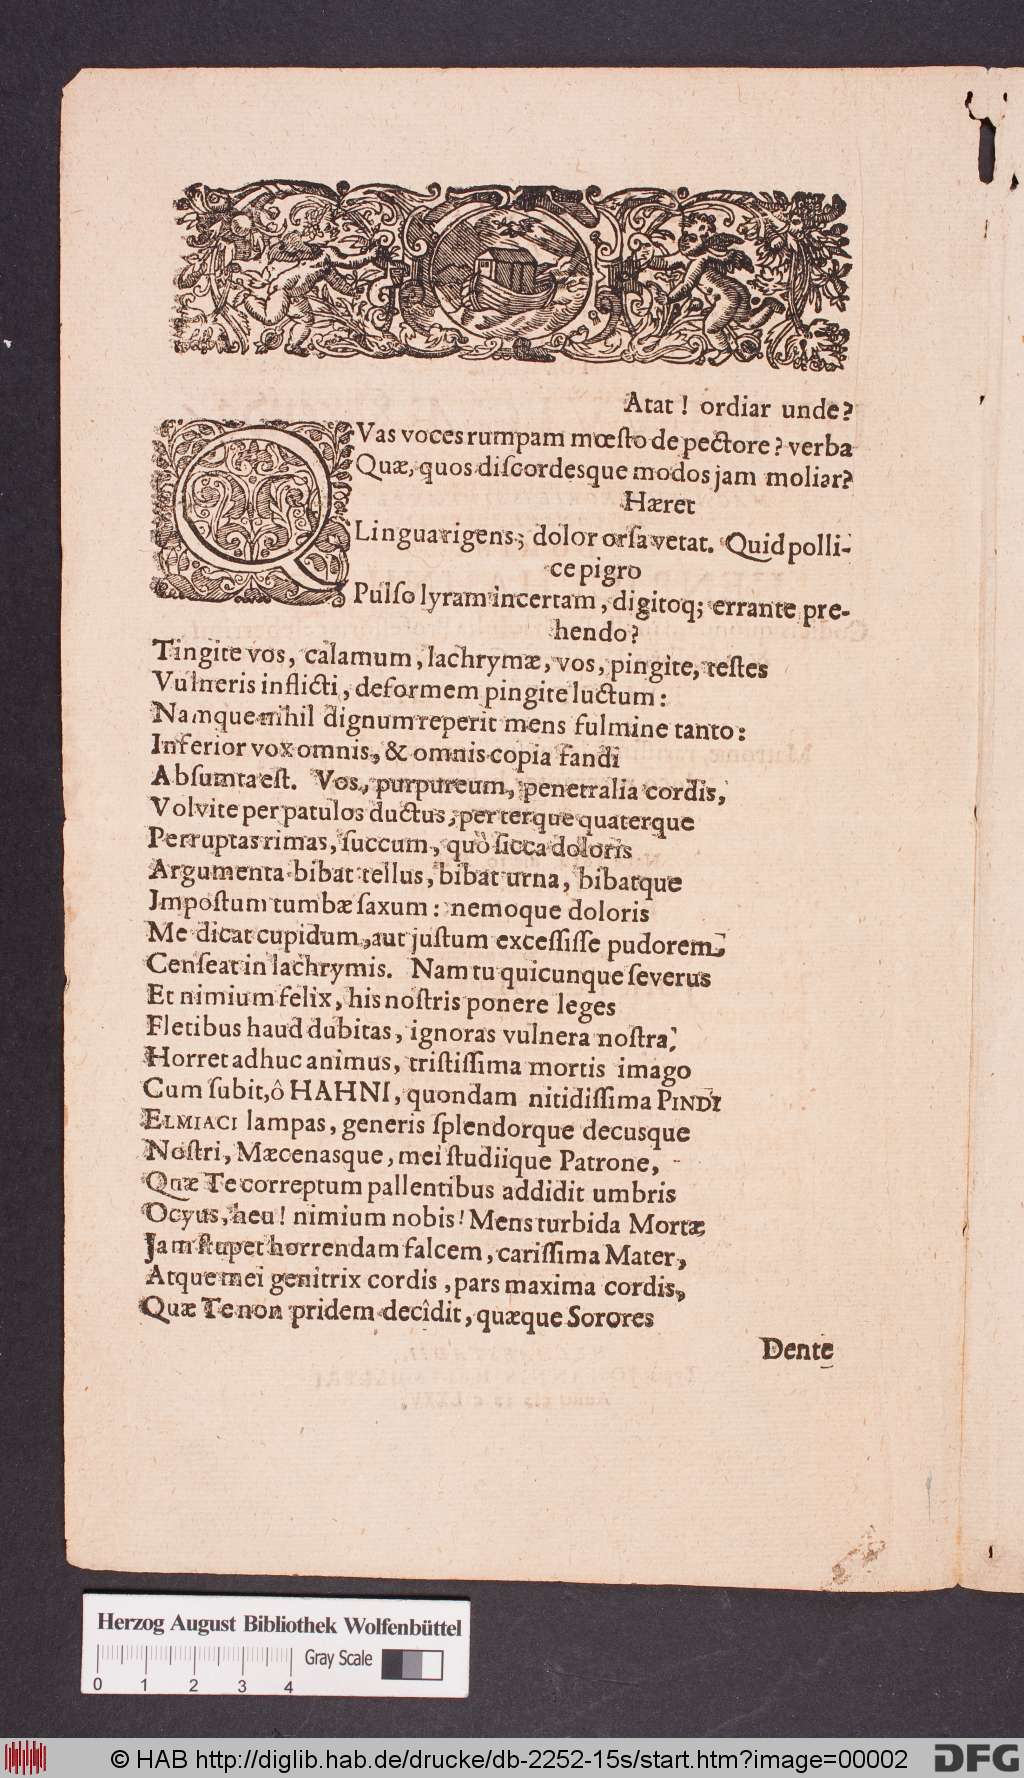 Atat! ordiar unde?
QVas voces rumpam mœsto de pectore? verba
Quæ, quos discordesque modos jam moliar?
Hæret
Lingua rigens; dolor orsa vetat. Quid polli-
ce pigro
Pulso lyram incertam, digitoq; errante pre-
hendo?
Tingite vos, calamum, lachrymæ, vos, pingite, testes
Vulneris inflicti, deformem pingite luctum:
Namque nihil dignum reperit mens fulmine tanto:
Inferior vox omnis, & omnis copia fandi
Absumta est. Vos, purpureum, penetralia cordis,
Volvite per patulos ductus, per terque quaterque
Perruptas rimas, succum, quò sicca doloris
Argumenta bibat tellus, bibat urna, bibatque
Jmpostum tumbæ saxum: nemoque doloris
Me dicat cupidum, aut justum excessisse pudorem,
Censeat in lachrymis. Nam tu quicunque severus
Et nimium felix, his nostris ponere leges
Fletibus haud dubitas, ignoras vulnera nostra.
Horret adhuc animus, tristissima mortis imago
Cum subit, ô HAHNI, quondam nitidissima PINDI
ELMIACI lampas, generis splendorque decusque
Nostri, Mæcenasque, mei studiique Patrone,
Quæ Te correptum pallentibus addidit umbris
Ocyus, heu! nimium nobis! Mens turbida Mortæ
Jam stupet horrendam falcem, carissima Mater,
Atque mei genitrix cordis, pars maxima cordis,
Quæ Te non pridem decîdit, quæque Sorores
Dente
Herzog August Bibliothek Wolfenbüttel
Gray Scale
0 1 2 3 4
© HAB http://diglib.hab.de/drucke/db-2252-15s/start.htm?image=00002
DFG